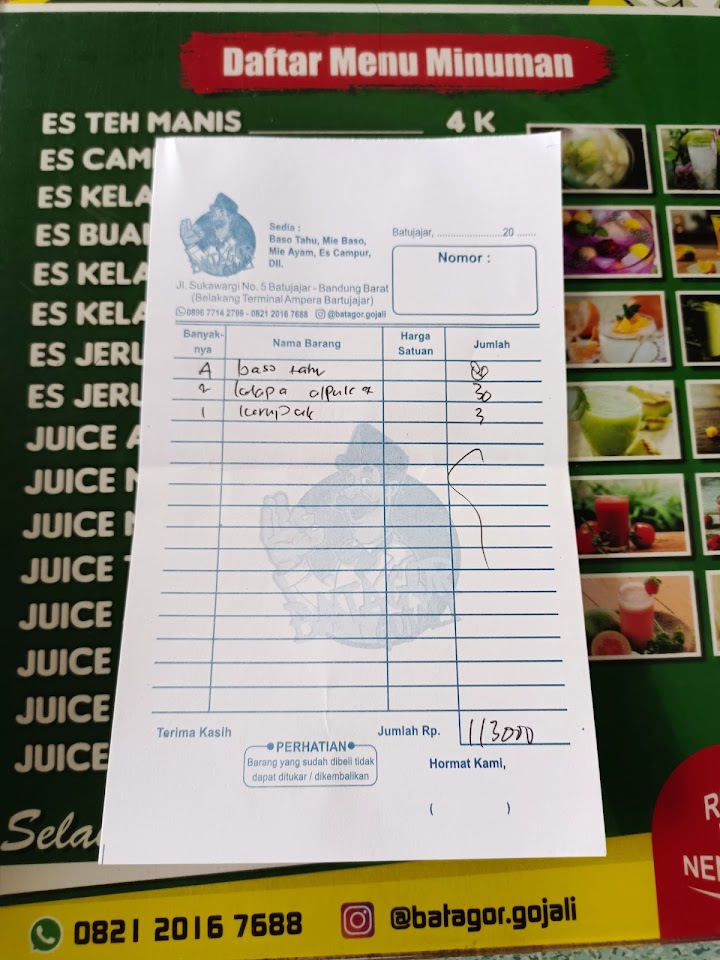 Daftar Menu Minuman
ES TEH MANIS 4 K
ES CAM
ES KELA
ES BUA
ES KELA
ES KELA
ES JERU
ES JERU
JUICE A
JUICE
JUICE
JUICE
JUICE
JUICE
JUICE
JUICE
Sedia :
Baso Tahu, Mie Baso,
Mie Ayam, Es Campur,
Dll.
Batujajar, ........................20 .......
Nomor :
Jl. Sukawargi No. 5 Batujajar - Bandung Barat
(Belakang Terminal Ampera Bartujajar)
0896 7714 2796 - 0821 2016 7688 @batagor.gojali
Banyak-nya Nama Barang Harga Satuan Jumlah
4 baso tahu 80
2 kalapa alpuket 30
1 kerupuk 3
Terima Kasih
Jumlah Rp. 113000
PERHATIAN
Barang yang sudah dibeli tidak
dapat ditukar / dikembalikan
Hormat Kami,
( )
Sela
0821 2016 7688 @batagor.gojali
R
NE